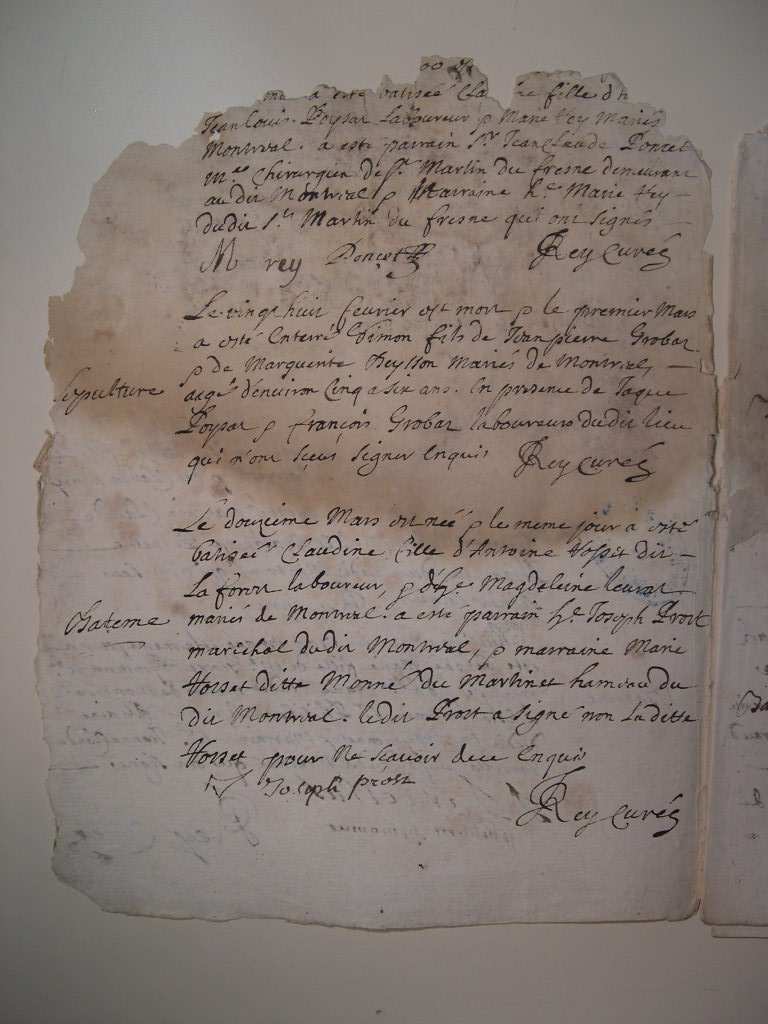 a esté batiseé fille d
Jean Louis Poysat Laboureur & Marie Rey Mariés
Montreal. a esté parrain Sr. Jean Claude Poncet
Chirurgien de St. Martin du fresne demeurant
au dit Montreal & Marraine h.e Marie Rey
du dit St. Martin du fresne qui ont signés
M rey Poncet Rey Curé
Le vingt huit fevrier est mort & le premier Mars
a esté Enterré Simon fils de Jean pierre Grobat
& de Marguerite Peysson Mariés de Montreal,
aagé d'environ Cinq a six ans. En presence de Jaque
Poysat & françois Grobat laboureurs du dit lieu
qui n'ont sceus signer Enquis Rey Curé
Sepulture
Le douzieme Mars est neé & le meme jour a esté
batiseé Claudine fille d'Antoine dit
La forest laboureur, & d'h.e Magdeleine
mariés de Montreal. a esté parrain h.e Joseph Prost
Bateme
marechal du dit Montreal, & marraine Marie
ditte Monné du Martinet hameau du
dit Montreal. ledit Prost a signé non la ditte
pour ne scavoir de ce Enquis
Joseph prost
Rey Curé